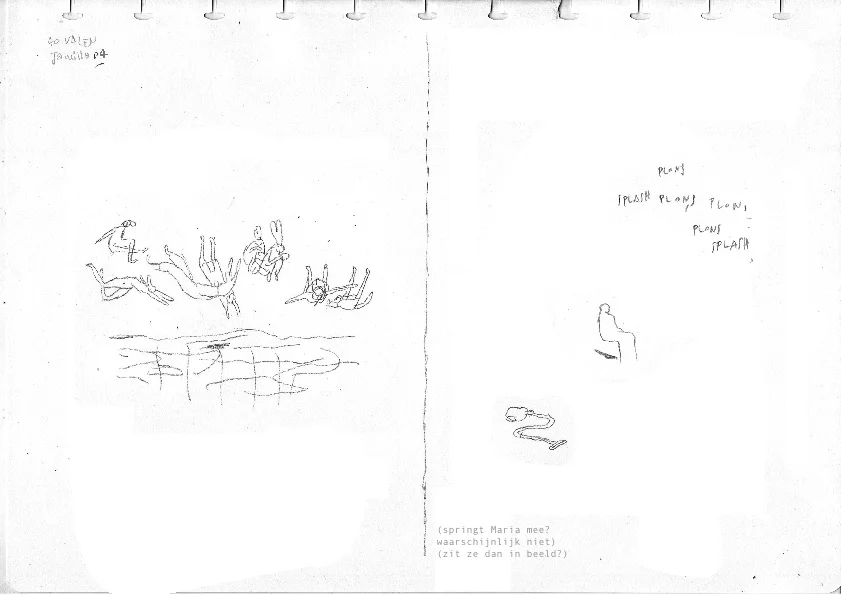 GO VALEN
P4
PLONS
SPLASH PLONS PLONS
PLONS
SPLASH
(springt Maria mee?
waarschijnlijk niet)
(zit ze dan in beeld?)